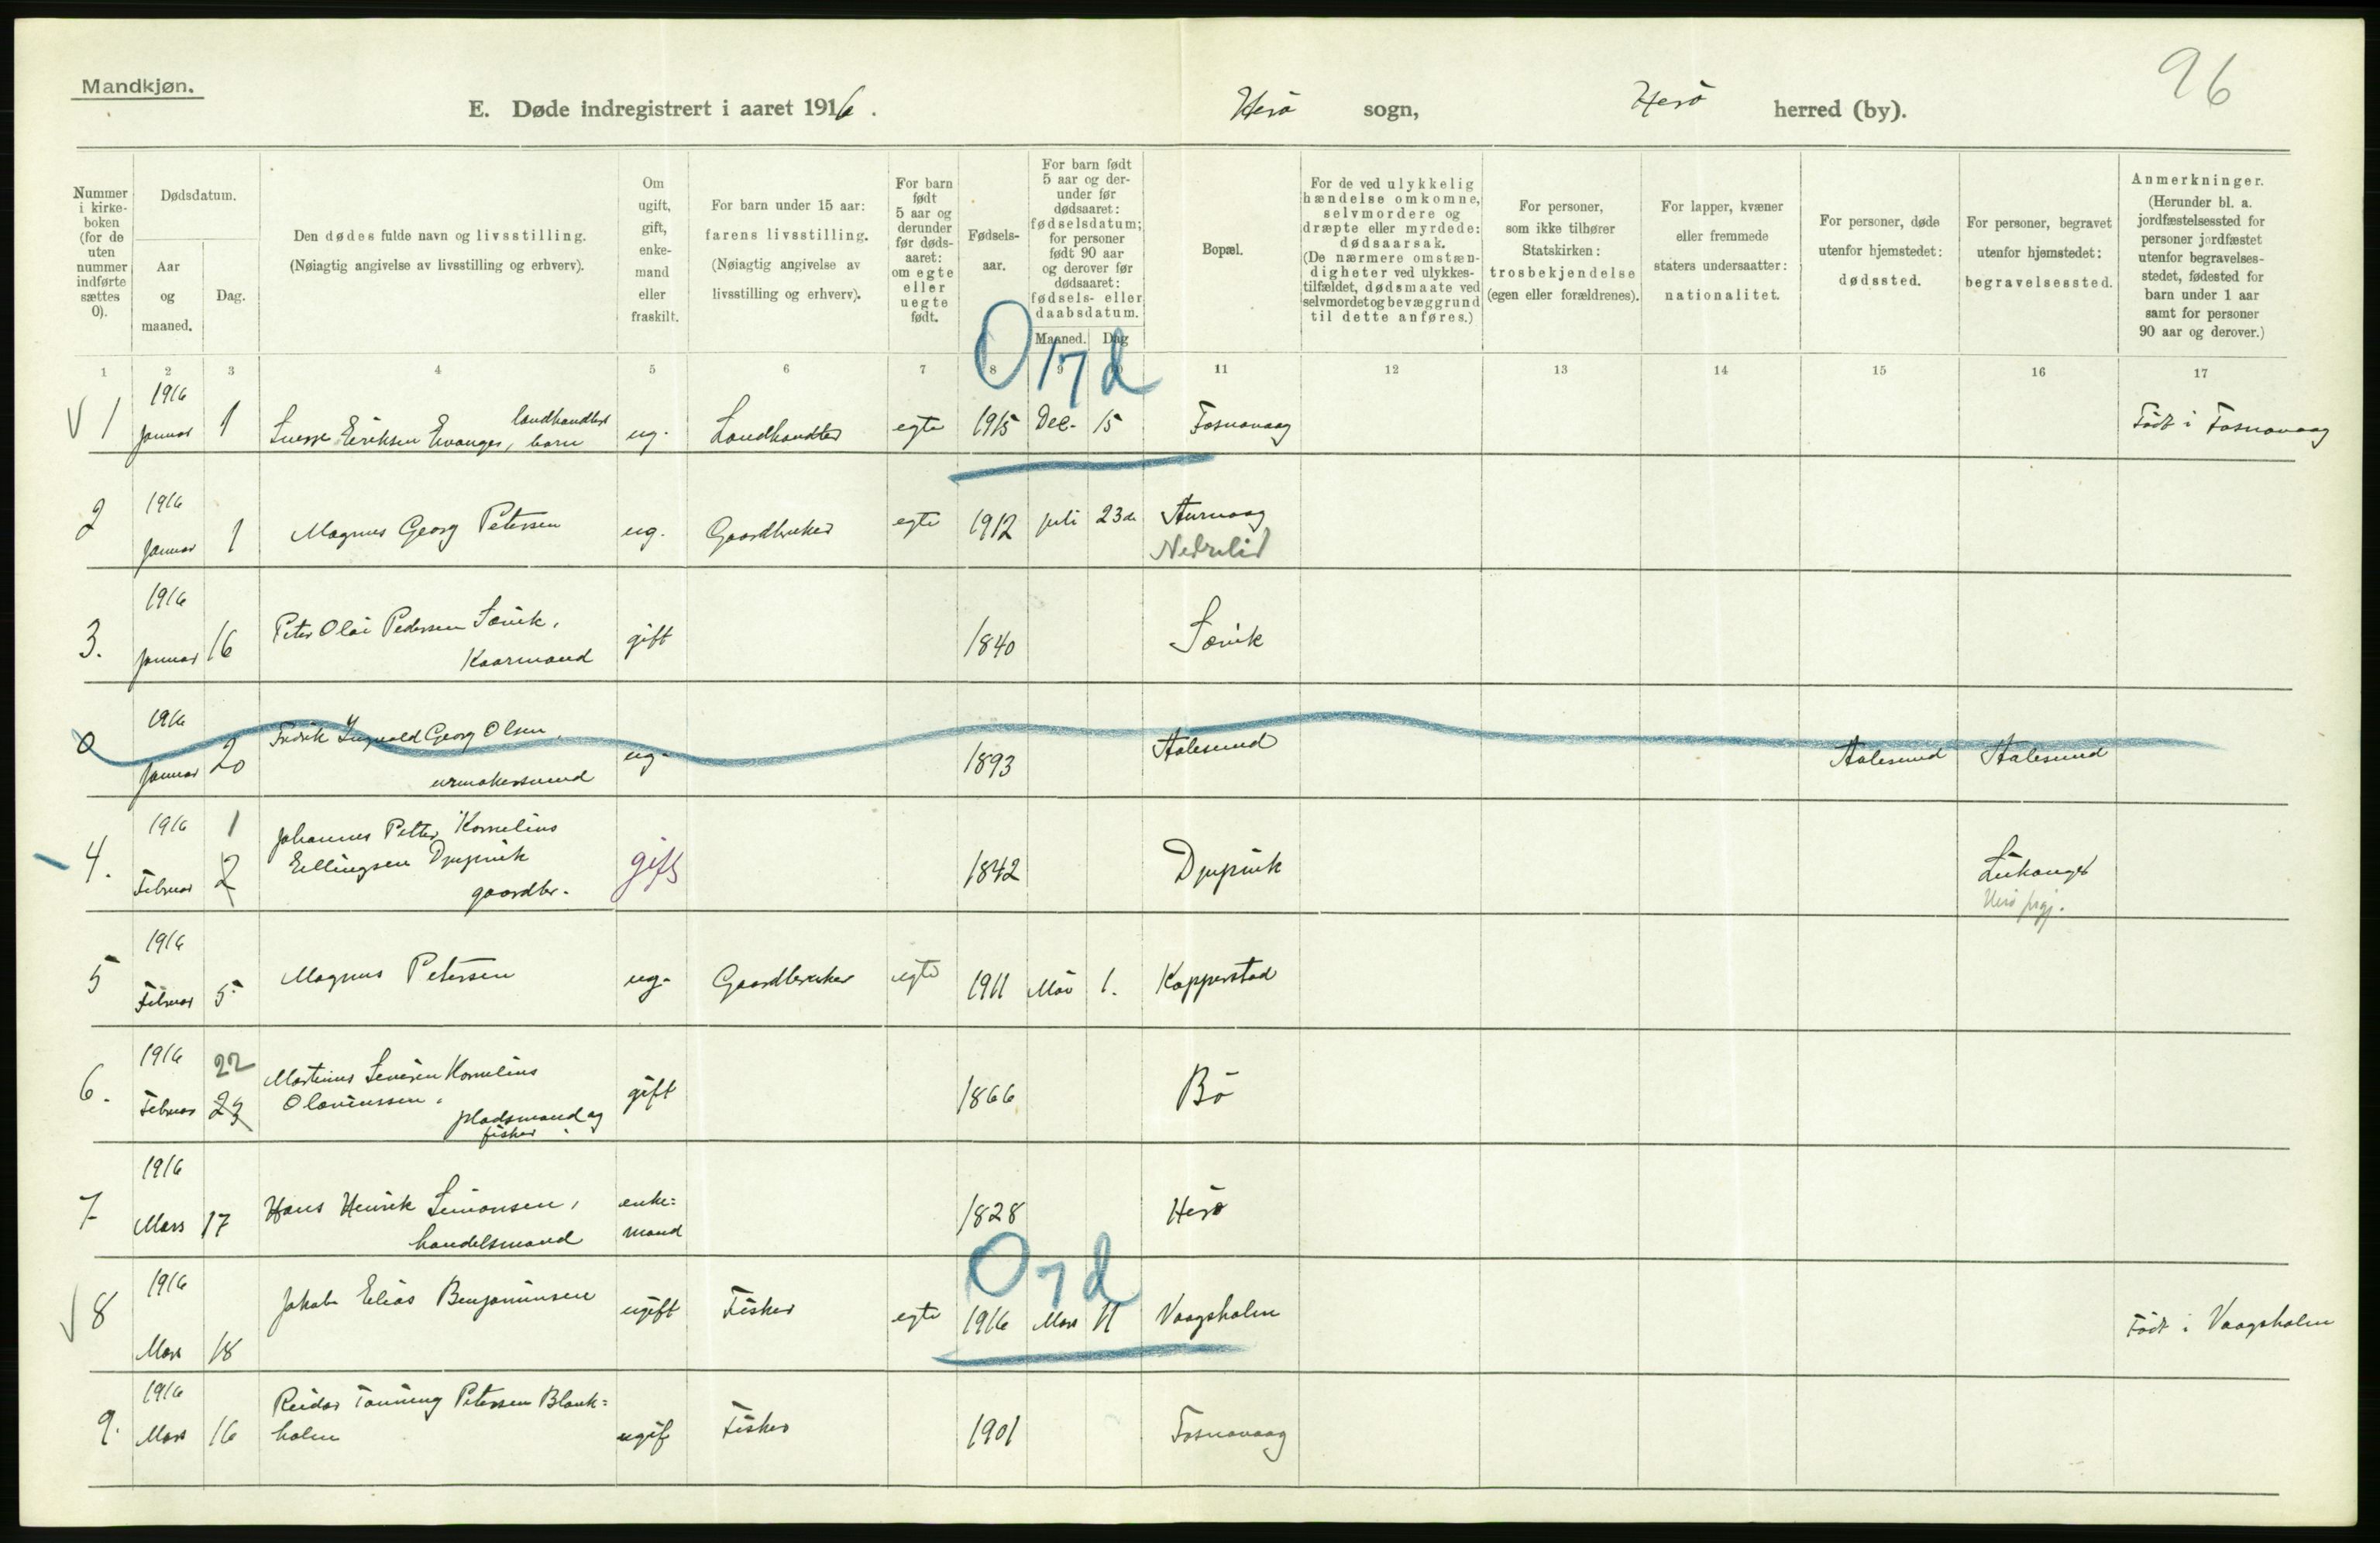 96
Mandkjøn.
E. Døde indregistrert i aaret 1916.
Herö sogn,
Herö herred (by).
Nummer i kirke-boken (for de uten nummer indførte sættes 0).
Dødsdatum.
Aar og maaned.
Dag.
Den dødes fulde navn og livsstilling.
(Nøiagtig angivelse av livsstilling og erhverv).
Om ugift, gift, enke-mand eller fraskilt.
For barn under 15 aar: farens livsstilling.
(Nøiagtig angivelse av livsstilling og erhverv).
For barn født 5 aar og derunder før døds-aaret: om egte eller uegte født.
Fødsels-aar.
For barn født 5 aar og der-under før dødsaaret: fødselsdatum; for personer født 90 aar og derover før dødsaaret: fødsels- eller daabsdatum.
Maaned. Dag
Bopæl.
For de ved ulykkelig hændelse omkomne, selvmordere og dræpte eller myrdede: dødsaarsak.
(De nærmere omstæn-digheter ved ulykkes-tilfældet, dødsmaate ved selvmordet og bevæggrund til dette anføres.)
For personer, som ikke tilhører Statskirken: trosbekjendelse (egen eller forældrenes).
For lapper, kvæner eller fremmede staters undersaatter: nationalitet.
For personer, døde utenfor hjemstedet: dødssted.
For personer, begravet utenfor hjemstedet: begravelsessted.
Anmerkninger.
(Herunder bl. a. jordfæstelsessted for personer jordfæstet utenfor begravelses-stedet, fødested for barn under 1 aar samt for personer 90 aar og derover.)
1 2 3 4 5 6 7 8 9 10 11 12 13 14 15 16 17
0 17 d
1 1916 Januar 1 Sverre Eriksen Evanger, landhandlers barn ug. Landhandler egte 1915 Dec. 15 Fosnavaag Födt i Fosnavaag
2 1916 Januar 1 Magnus Georg Petersen ug. Gaardbruker egte 1912 juli 23de Aurvaag
Nedrelid
3. 1916 Januar 16 Peter Olai Pedersen Sævik,
Kaarmand gift 1840 Sævik
0 1916 Januar 20 Fredrik Ingvald Georg Olsen,
urmakersvend ug. 1893 Aalesund Aalesund Aalesund
4. 1916 Februar 1 2 Johannes Petter Kornelius
Ellingsen Djupvik
gaardbr. gift 1842 Djupvik Leikanger
Herö prgj.
5 1916 Februar 5 Magnus Petersen ug. Gaardbruker egte 1911 Mai 1. Kopperstad
6. 1916 Februar 22 23 Martinus Severin Kornelius
Olavinussen,
pladsmand og
fisker. gift 1866 Bö
7 1916 Mars 17 Hans Henrik Simonsen,
handelsmand enke=
mand 1828 Herö
0 7 d
8 1916 Mars 18 Jakob Elias Benjaminsen ugift Fisker egte 1916 Mars 11 Vaagsholm Födt i Vaagsholm
9. 1916 Mars 16 Reidar Petersen Blank=
holm ugift Fisker 1901 Fosnavaag